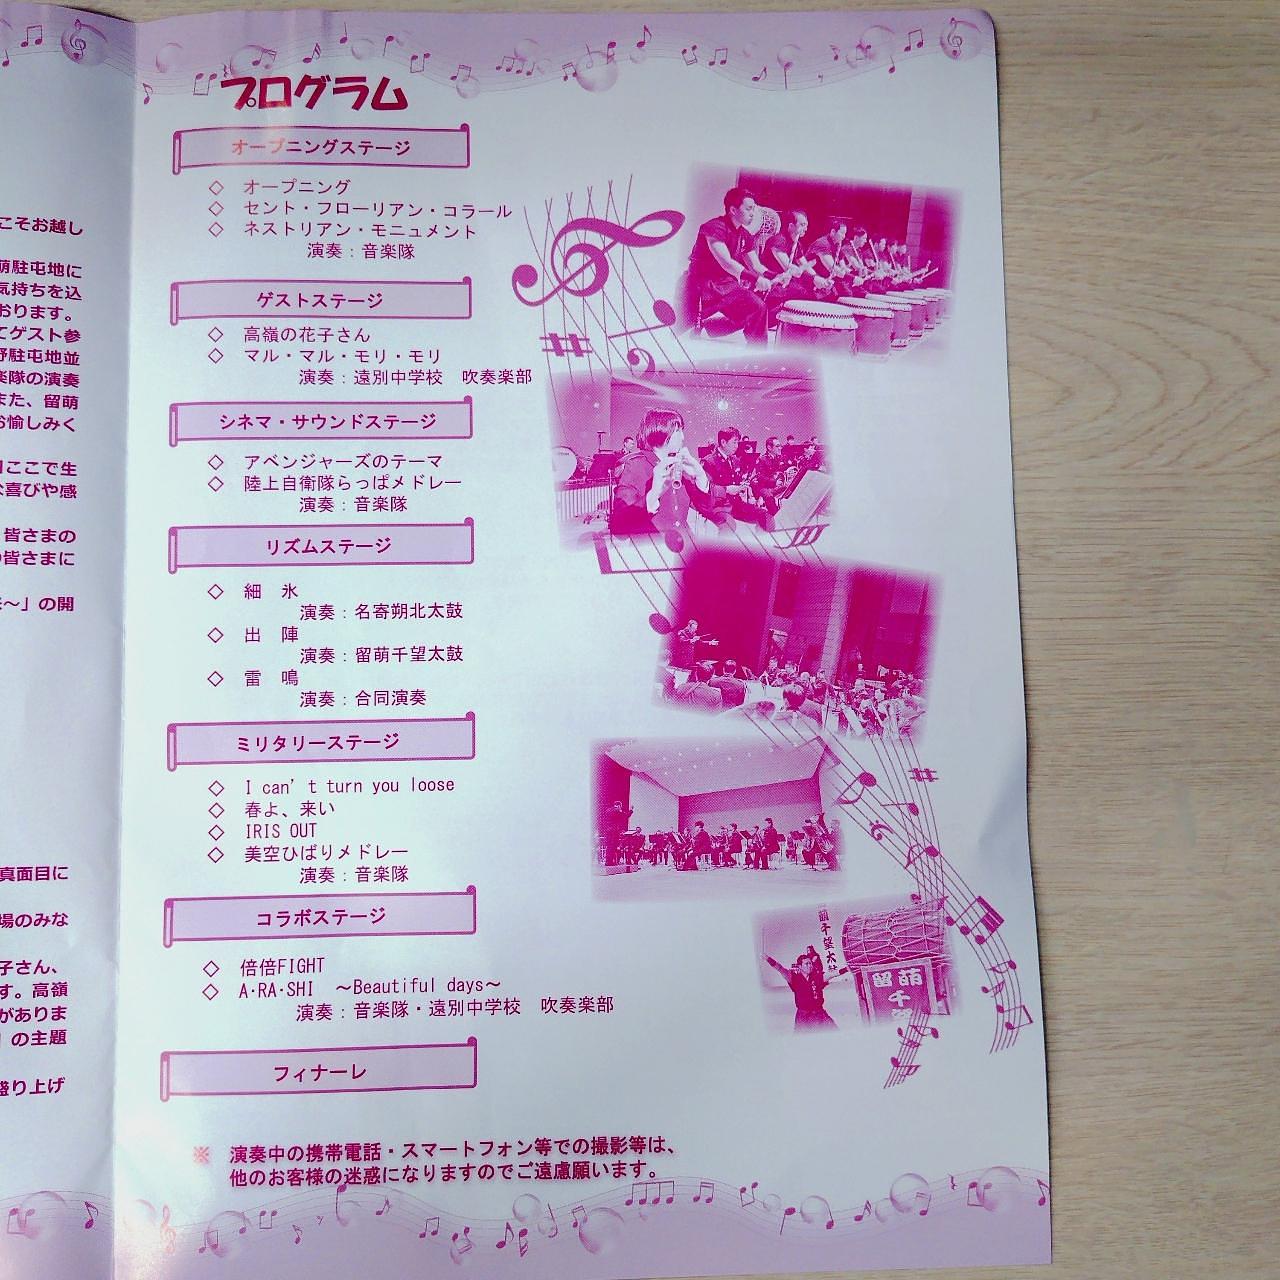 こそお越し
萌駐屯地に
気持ちを込
おります。
てゲスト参
野駐屯地並
楽隊の演奏
また、留萌
お愉しみく
ここで生
な喜びや感
皆さまの
の皆さまに
～」の開
真面目に
場のみな
子さん、
す。高嶺
がありま
の主題
盛り上げ
プログラム
オープニングステージ
◇ オープニング
◇ セント・フローリアン・コラール
◇ ネストリアン・モニュメント
演奏：音楽隊
ゲストステージ
◇ 高嶺の花子さん
◇ マル・マル・モリ・モリ
演奏：遠別中学校　吹奏楽部
シネマ・サウンドステージ
◇ アベンジャーズのテーマ
◇ 陸上自衛隊らっぱメドレー
演奏：音楽隊
リズムステージ
◇ 細　氷
演奏：名寄朔北太鼓
◇ 出　陣
演奏：留萌千望太鼓
◇ 雷　鳴
演奏：合同演奏
ミリタリーステージ
◇ I can't turn you loose
◇ 春よ、来い
◇ IRIS OUT
◇ 美空ひばりメドレー
演奏：音楽隊
コラボステージ
◇ 倍倍FIGHT
◇ A･RA･SHI　～Beautiful days～
演奏：音楽隊・遠別中学校　吹奏楽部
フィナーレ
※ 演奏中の携帯電話・スマートフォン等での撮影等は、
他のお客様の迷惑になりますのでご遠慮願います。
萌千望太
留萌
千